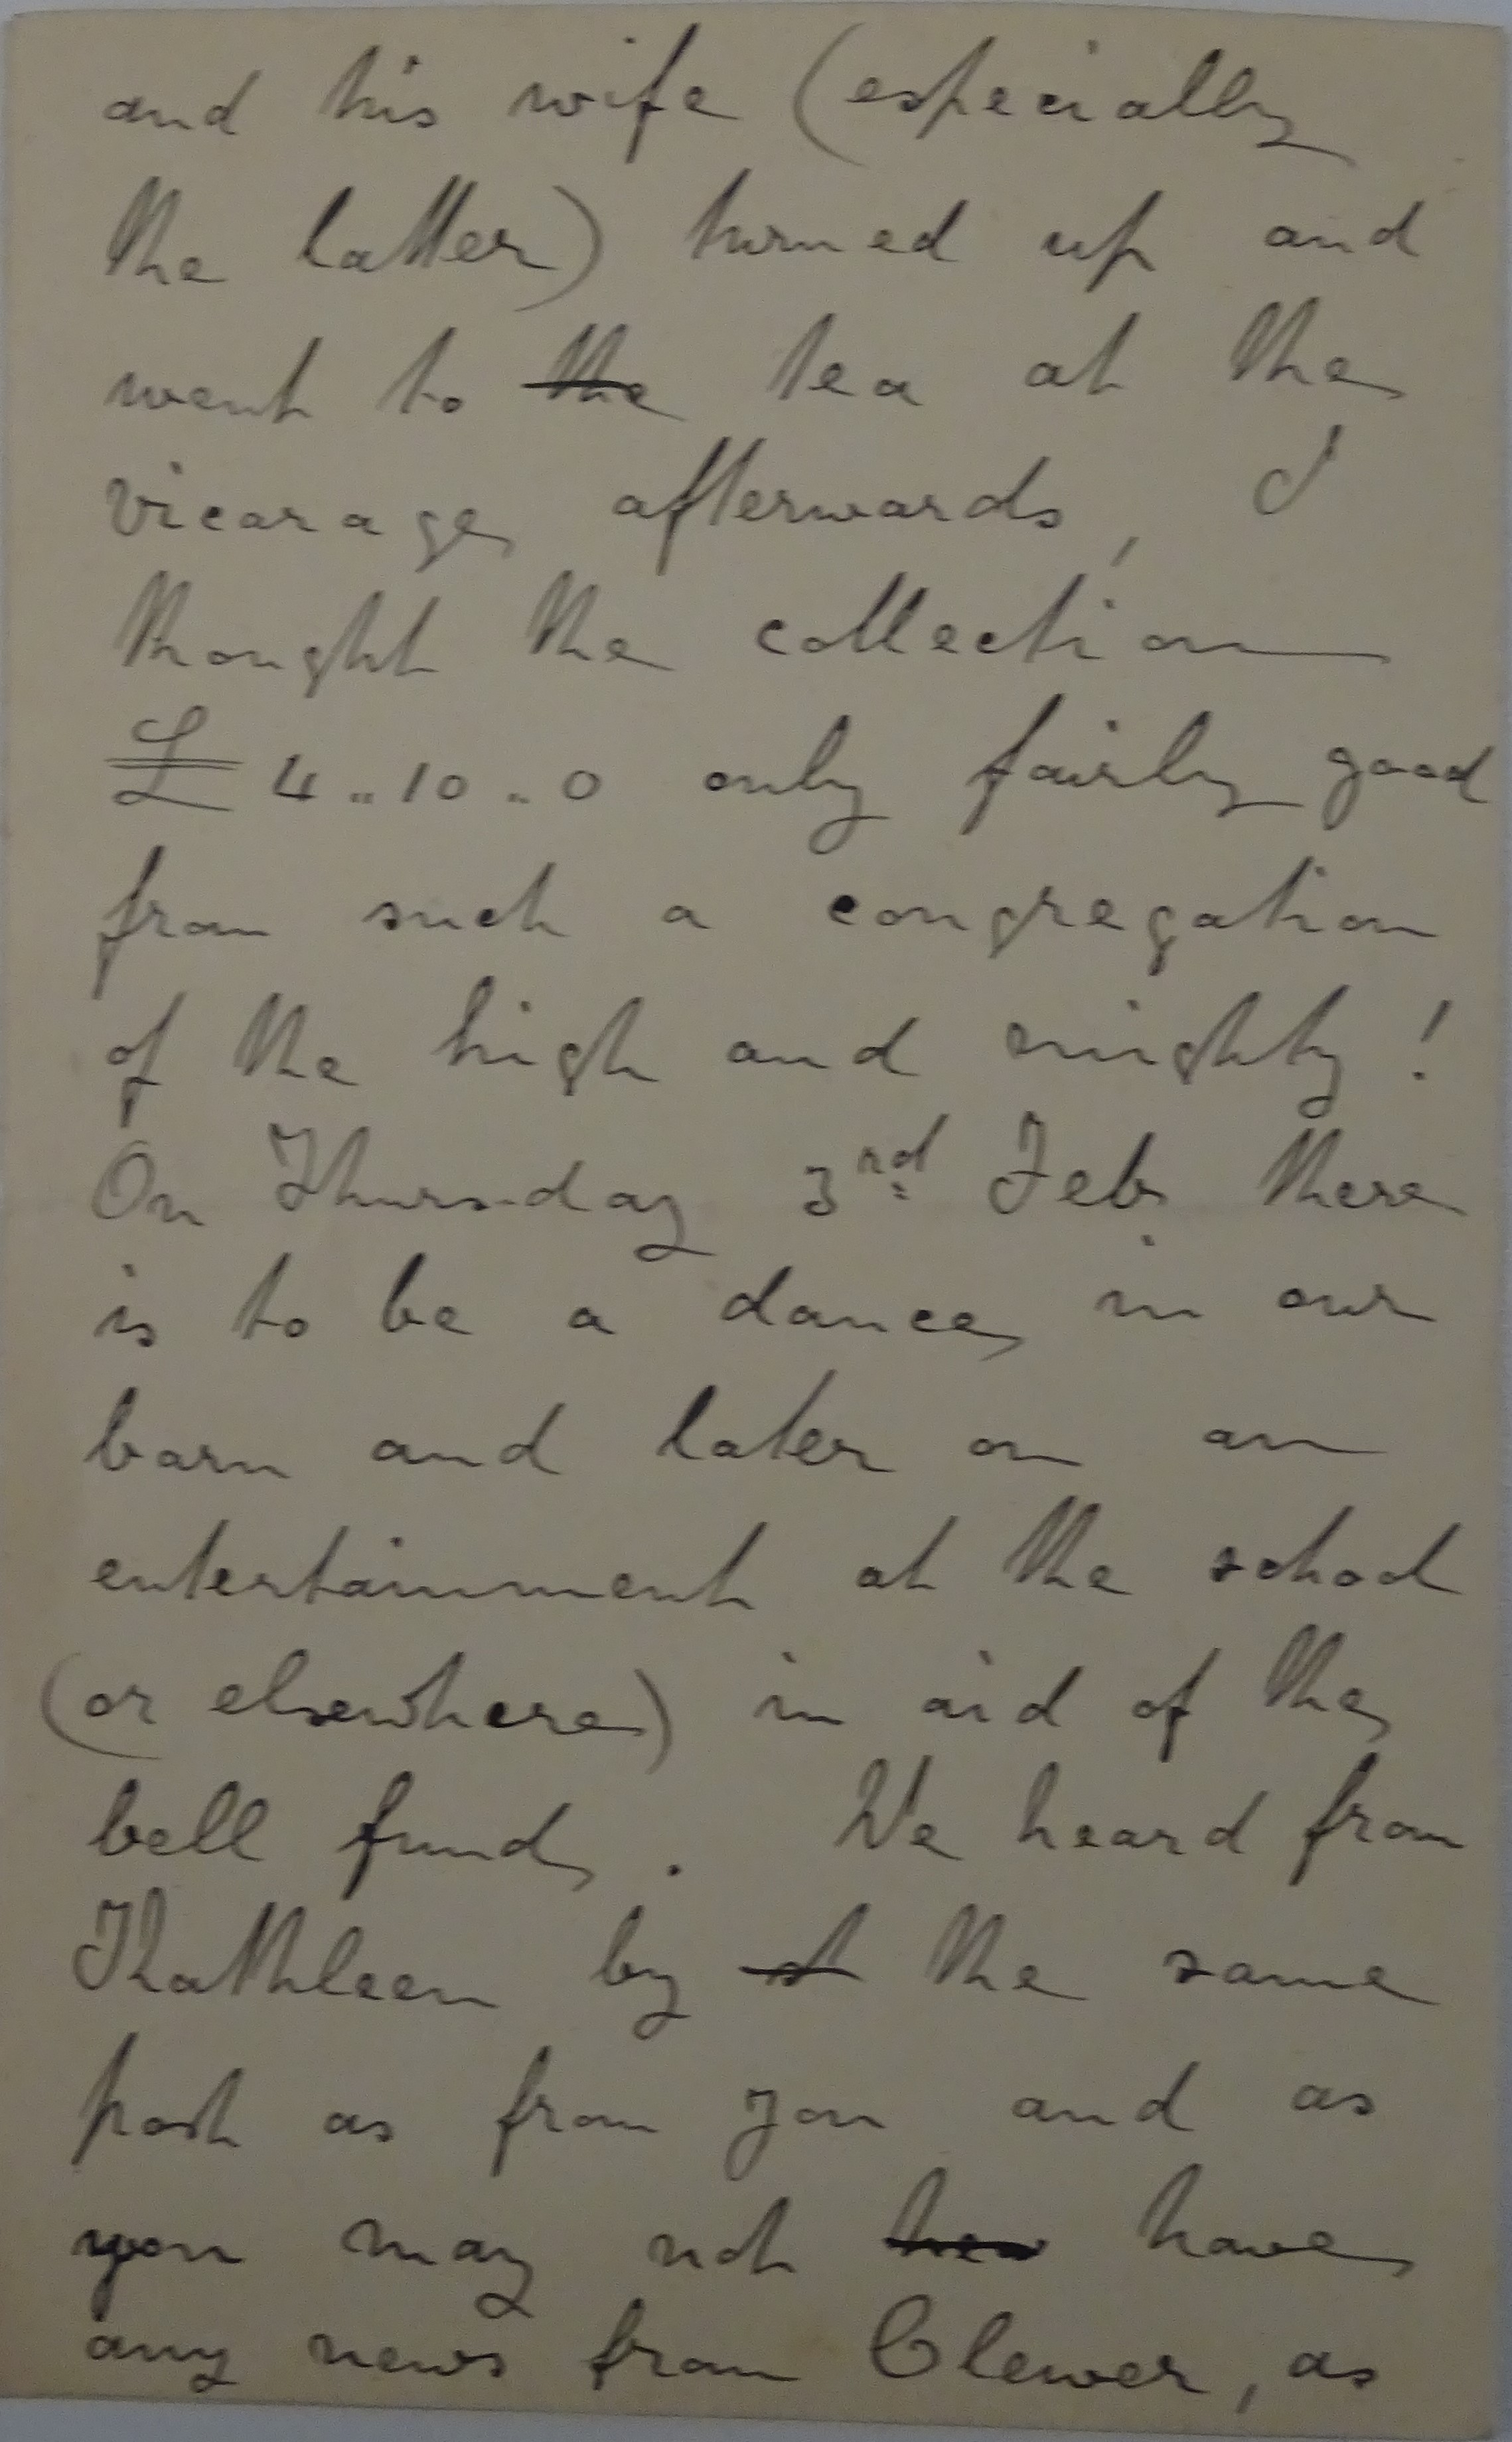 and his wife (especially
the latter) turned up and
went to the tea at the
vicarage afterwards, I
thought the collection
£4..10..0 only fairly good
from such a congregation
of the high and mighty!
On Thursday 3rd Feb. there
is to be a dance in our
barn and later on an
entertainment at the school
(or elsewhere) in aid of the
bell fund. We heard from
Khathleen by st the same
post as from you and as
you may not hew have
any news from Clewer, as